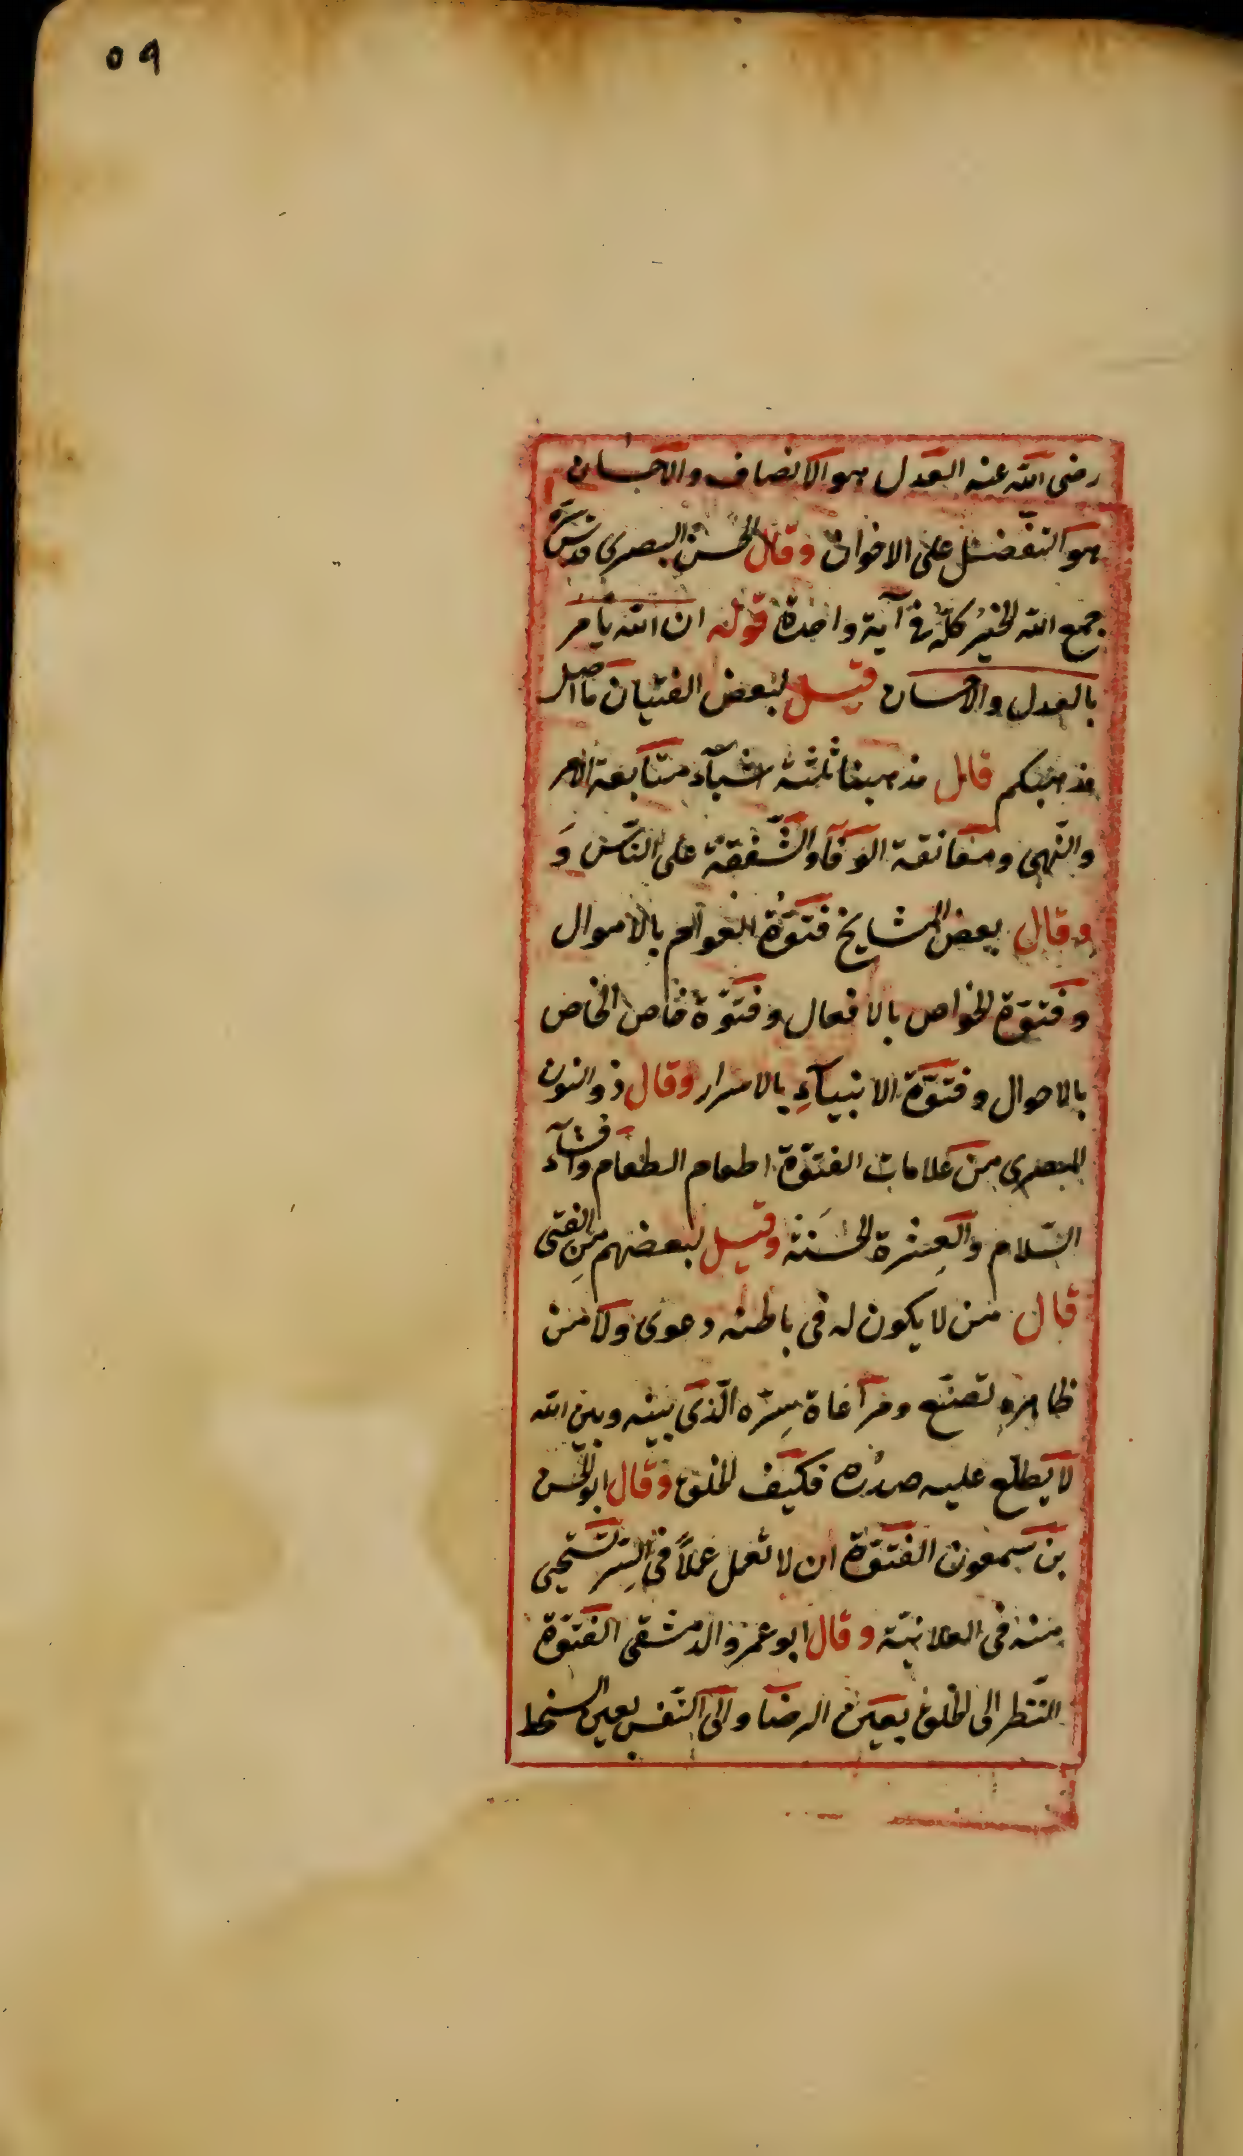 ٥٩
رضى الله عنه العدل هو الانصاف والاحسان
هو التفضّل على الاخوان وقال الحسن البصرى قدّس سرّه
جمع الله الخيرَ كلّه فى آية واحدة قوله ان الله يأمر
بالعدل والاحسان قيل لبعض الفتيان ما اصل
مذهبكم قال مذهبنا ثلثة اشيآء متابعة الامر
والنّهى ومعانقة الوفآ والشّفقة على النّاس وَ
وقال بعض المشايخ فتوّة العوام بالاموال
وفتوّة الخواص بالافعال وفتوّة خاص الخاص
بالاحوال وفتوّة الانبيآءِ بالاسرار وقال ذو النون
المصرى من علامات الفتوّة اطعام الطعام وافشآء
السّلام والعِشرة الحسَنة وقيل لبعضهم مَنِ الفتى
قال من لا يكون له فى باطنه دعوى ولا من
ظاهرهِ تصنّع ومراعاة سِرّه الّذى بينه وبين الله
لا يطلع عليه صدرُه فكيف الخلق وقال ابو الحسن
بن سمعون الفتوّة ان لا تعمل عملاً فى السّر تستحيى
منه فى العلانيّة وقال ابو عمرو الدمشقى الفتوّة
النّظر الى الخلق بعين الرضا والى النّفس بعين السخط